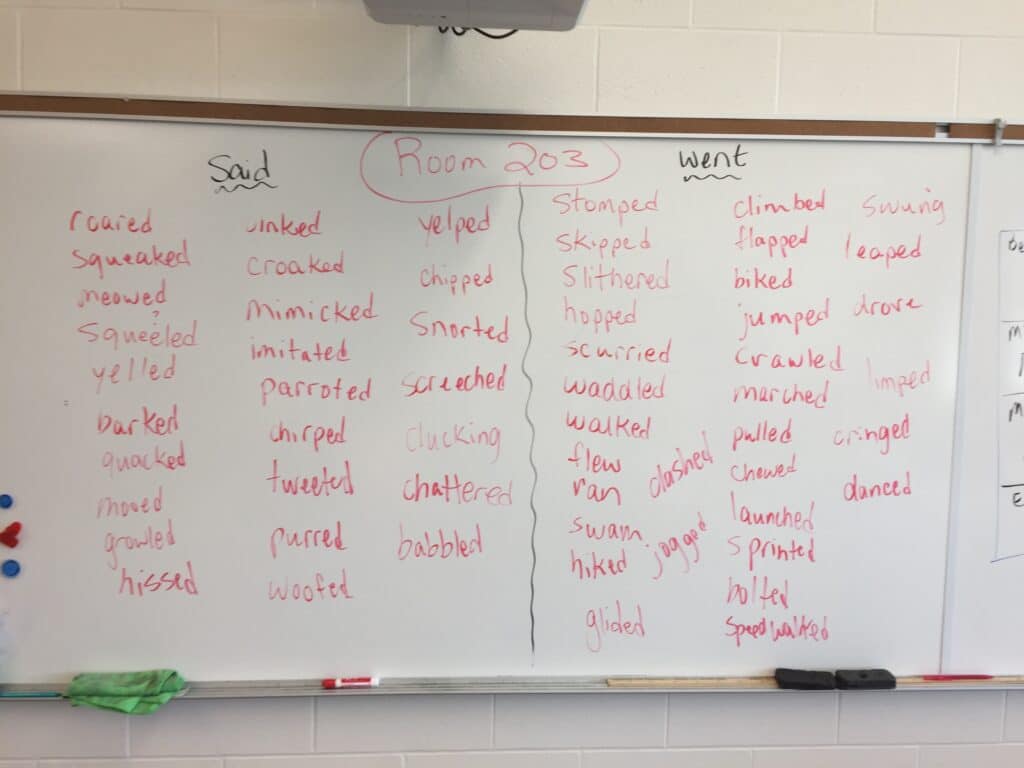 Room 203
Said
roared
squeaked
meowed
?
squeeled
yelled
barked
quacked
mooed
growled
hissed
oinked
croaked
mimicked
imitated
parroted
chirped
tweeted
purred
woofed
yelped
chipped
snorted
screeched
clucking
chattered
babbled
went
stomped
skipped
slithered
hopped
scurried
waddled
walked
flew
ran
swam
hiked
glided
dashed
jogged
climbed
flapped
biked
jumped
crawled
marched
pulled
chewed
launched
sprinted
bolted
speed walked
swung
leaped
drove
limped
cringed
danced